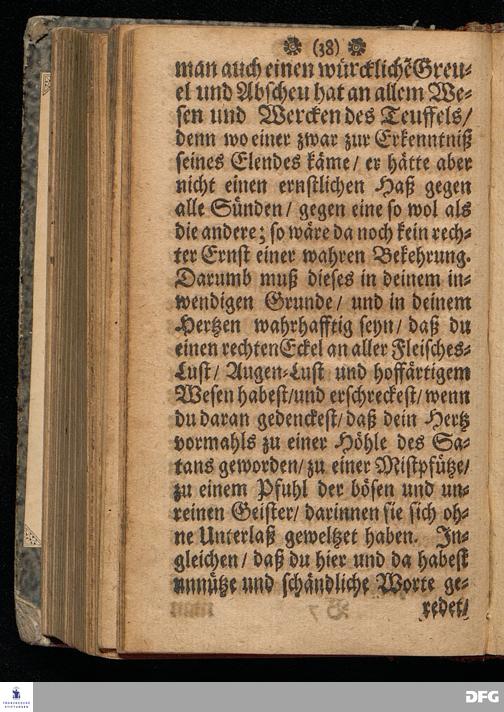 (38)
man auch einen würcklichẽ Greu-
el und Abscheu hat an allem We-
sen und Wercken des Teuffels/
denn wo einer zwar zur Erkenntniß
seines Elendes käme/ er hätte aber
nicht einen ernstlichen Haß gegen
alle Sünden/ gegen eine so wol als
die andere; so wäre da noch kein rech-
ter Ernst einer wahren Bekehrung.
Darumb muß dieses in deinem in-
wendigen Grunde/ und in deinem
Hertzen wahrhafftig seyn/ daß du
einen rechten Eckel an aller Fleisches-
Lust/ Augen-Lust und hoffärtigem
Wesen habest/ und erschreckest/ wenn
du daran gedenckest/ daß dein Hertz
vormahls zu einer Höhle des Sa-
tans geworden/ zu einer Mistpfütze/
zu einem Pfuhl der bösen und un-
reinen Geister/ darinnen sie sich oh-
ne Unterlaß geweltzet haben. In-
gleichen/ daß du hier und da habest
unnütze und schändliche Worte ge-
redet/
FRANCKESCHE
STIFTUNGEN
DFG